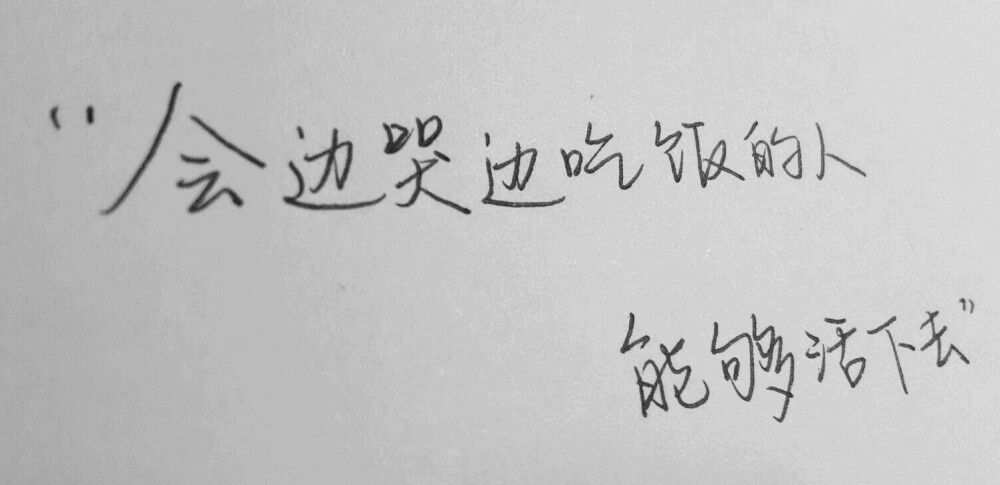 “会边哭边吃饭的人
能够活下去”